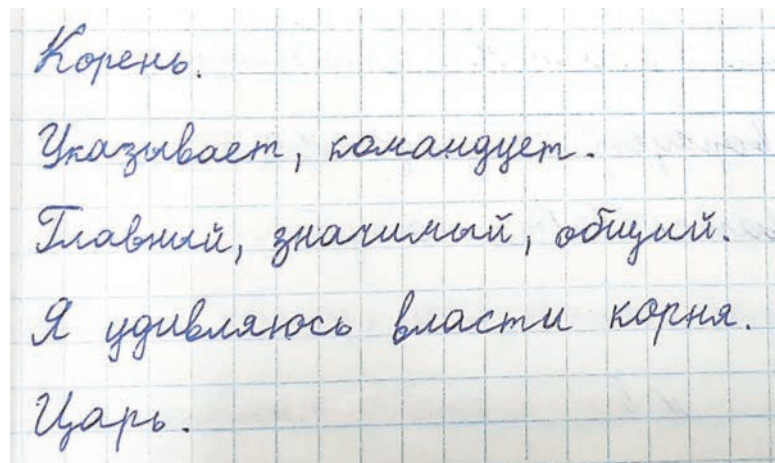 Корень.
Указывает, командует.
Главный, значимый, общий.
Я удивляюсь власти корня.
Царь.